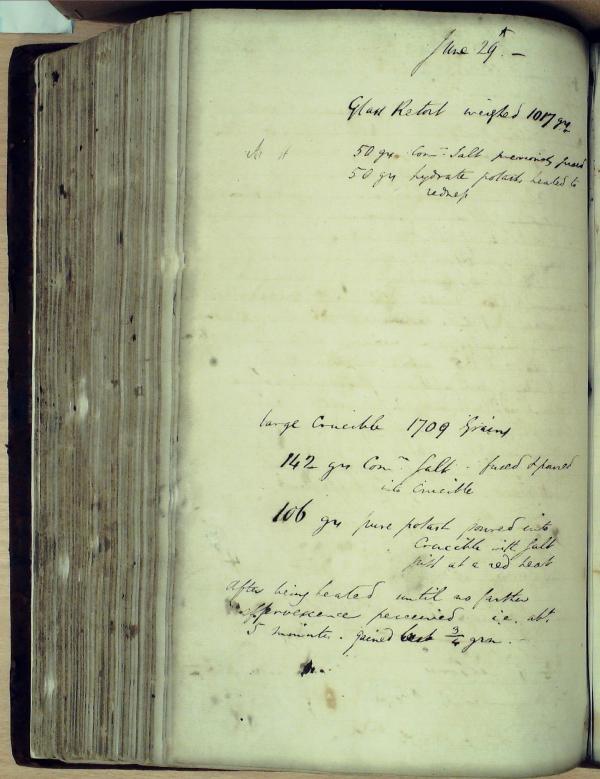 June 29th. —
Glass Retort weighed 1017 grs
50 grs. Comn Salt previously fused
50 grs hydrate potash heated to
redness
large Crucible 1709 Grains
142 grs Comn. Salt - fused & poured
into Crucible
106 grs pure potash poured into
Crucible with Salt
just at a red heat
After being heated until no farther
effervescence perceived i.e. abt.
5 minutes. gained 3/4 grn. -